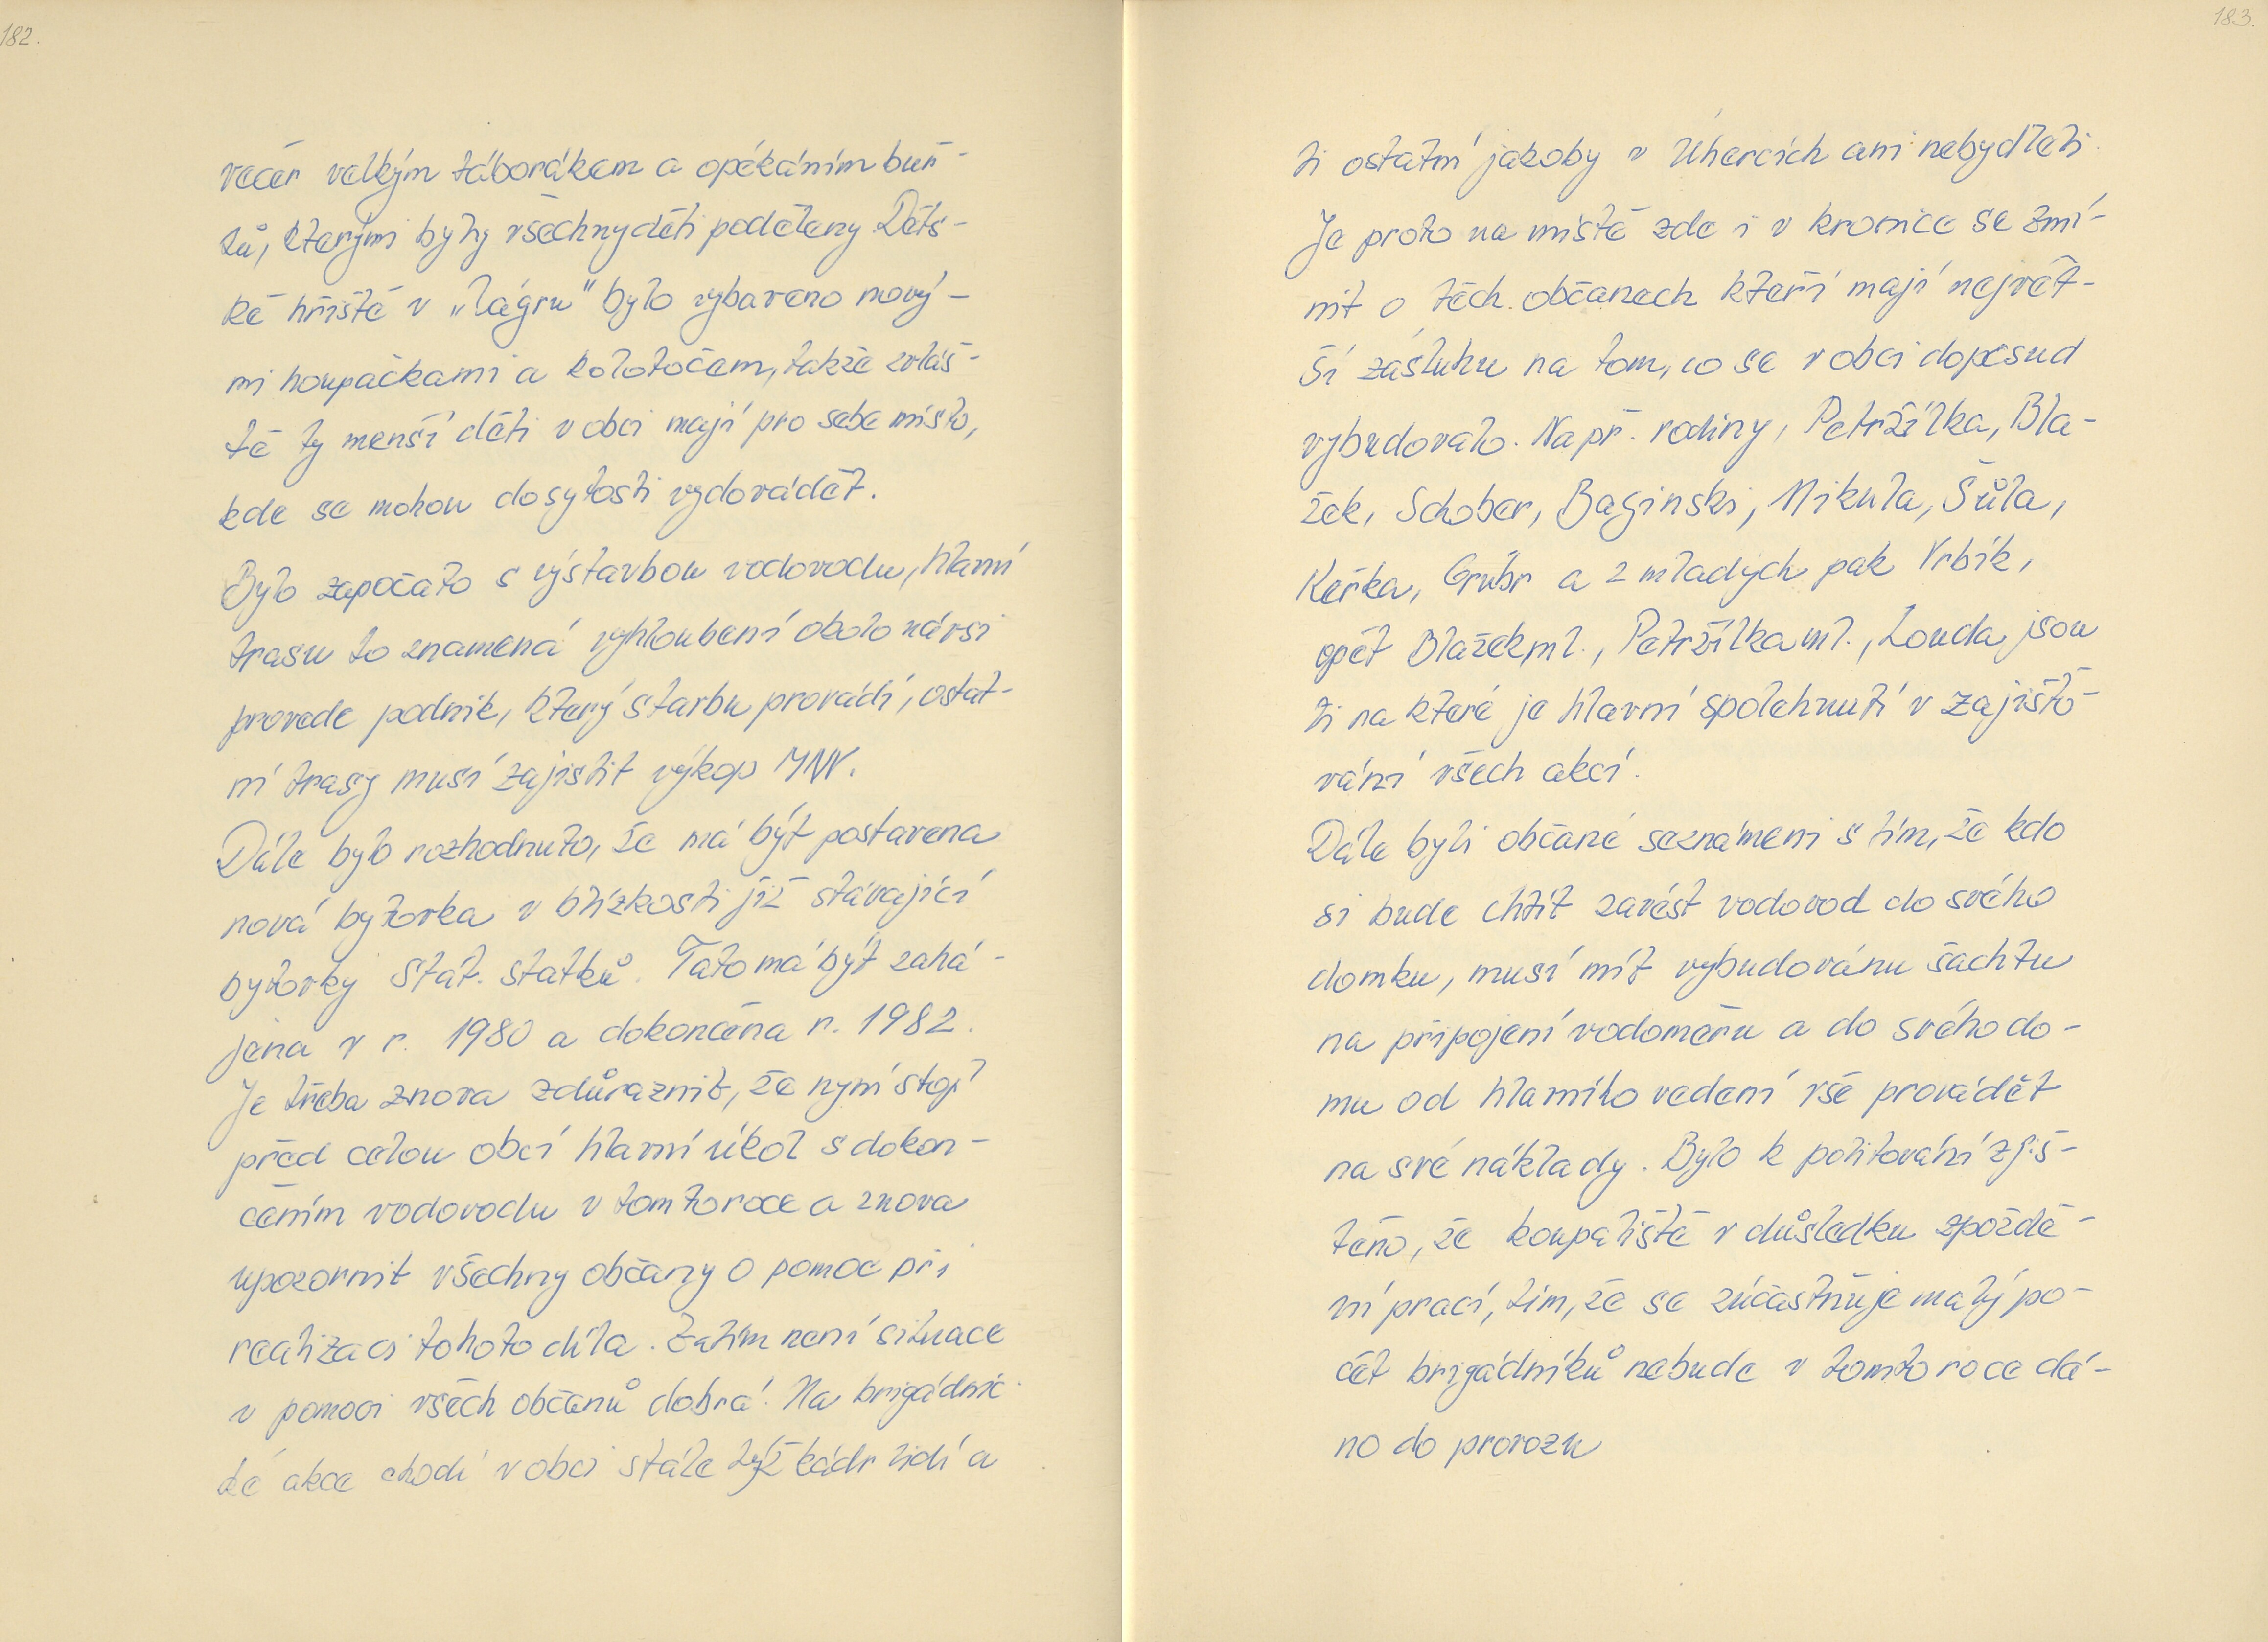 182.
večer velkým táborákem a opékáním buř-
tů, kterými byly všechny děti poděleny. Děts-
ké hřiště v „lágru" bylo vybaveno nový-
mi houpačkami a kolotočem, takže zvláš-
tě ty menší děti v obci mají pro sebe místo,
kde se mohou dosytosti vydovádět.
Bylo započato s výstavbou vodovodu, hlavní
trasu to znamená vyhloubení okolo návsi
provede podnik, který stavbu provádí, ostat-
ní trasy musí zajistit výkop MNV.
Dále bylo rozhodnuto, že má být postavena
nová bytovka v blízkosti již stávající
bytovky Stat. statků. Tato má být zahá-
jena v r. 1980 a dokončena r. 1982.
Je třeba znova zdůraznit, že nyní stojí
před celou obcí hlavní úkol s dokon-
čením vodovodu v tomto roce a znova
upozornit všechny občany o pomoc při
realizaci tohoto díla. Zatím není situace
v pomoci všech občanů dobrá. Na brigádnic-
ké akce chodí v obci stále týž kádr lidí a
183.
ti ostatní jakoby v Úhercích ani nebydleli.
Je proto na místě zde i v kronice se zmí-
nit o těch občanech kteří mají největ-
ší zásluhu na tom, co se v obci doposud
vybudovalo. Např. rodiny, Petržílka, Bla-
žek, Schober, Baginski, Mikula, Šůla,
Keřka, Grübr a z mladých pak Vrbík,
opět Blažek ml., Petržílka ml., Louda jsou
ti na které je hlavní spolehnutí v zajišťo-
vání všech akcí.
Dále byli občané seznámeni s tím, že kdo
si bude chtít zavést vodovod do svého
domku, musí mít vybudovánu šachtu
na připojení vodoměru a do svého do-
mu od hlavního vedení vše provádět
na své náklady. Bylo k politování zjiš-
těno, že koupaliště v důsledku zpoždě-
ní prací, tím, že se zúčastňuje malý po-
čet brigádníků nebude v tomto roce dá-
no do provozu